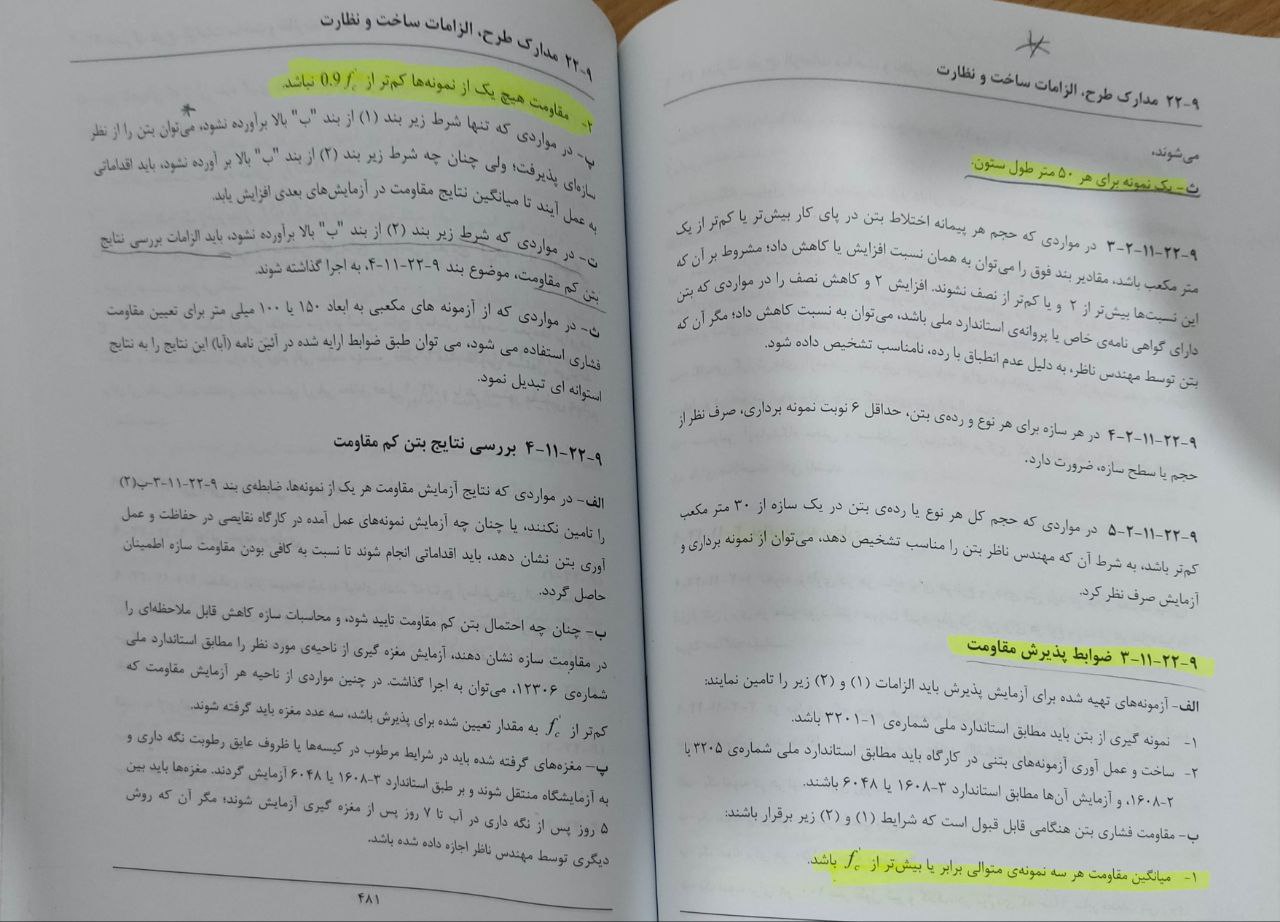 ۹-۲۲ مدارک طرح، الزامات ساخت و نظارت
می‌شوند.
ث- یک نمونه برای هر ۵۰ متر طول ستون.
۹-۲۲-۱۱-۲-۳ در مواردی که حجم هر پیمانه اختلاط بتن در پای کار بیش‌تر یا کم‌تر از یک
متر مکعب باشد، مقادیر بند فوق را می‌توان به همان نسبت افزایش یا کاهش داد؛ مشروط بر آن که
این نسبت‌ها بیش‌تر از ۲ و یا کم‌تر از نصف نشوند. افزایش ۲ و کاهش نصف را در مواردی که بتن
دارای گواهی نامه‌ی خاص یا پروانه‌ی استاندارد ملی باشد، می‌توان به نسبت کاهش داد؛ مگر آن که
بتن توسط مهندس ناظر، به دلیل عدم انطباق با رده، نامناسب تشخیص داده شود.
۹-۲۲-۱۱-۲-۴ در هر سازه برای هر نوع و رده‌ی بتن، حداقل ۶ نوبت نمونه برداری، صرف نظر از
حجم یا سطح سازه، ضرورت دارد.
۹-۲۲-۱۱-۲-۵ در مواردی که حجم کل هر نوع یا رده‌ی بتن در یک سازه از ۳۰ متر مکعب
کم‌تر باشد، به شرط آن که مهندس ناظر بتن را مناسب تشخیص دهد، می‌توان از نمونه برداری و
آزمایش صرف نظر کرد.
۹-۲۲-۱۱-۳ ضوابط پذیرش مقاومت
الف- آزمونه‌های تهیه شده برای آزمایش پذیرش باید الزامات (۱) و (۲) زیر را تامین نمایند:
۱- نمونه گیری از بتن باید مطابق استاندارد ملی شماره‌ی ۱-۳۲۰۱ باشد.
۲- ساخت و عمل آوری آزمونه‌های بتنی در کارگاه باید مطابق استاندارد ملی شماره‌ی ۳۲۰۵ یا
۲-۱۶۰۸، و آزمایش آن‌ها مطابق استاندارد ۳-۱۶۰۸ یا ۶۰۴۸ باشند.
ب- مقاومت فشاری بتن هنگامی قابل قبول است که شرایط (۱) و (۲) زیر برقرار باشند:
۱- میانگین مقاومت هر سه نمونه‌ی متوالی برابر یا بیش‌تر از f'c باشد.
۹-۲۲ مدارک طرح، الزامات ساخت و نظارت
۲- مقاومت هیچ یک از نمونه‌ها کم‌تر از 0.9 f'c نباشد.
پ- در مواردی که تنها شرط زیر بند (۱) از بند "ب" بالا برآورده نشود، می‌توان بتن را از نظر
سازه‌ای پذیرفت؛ ولی چنان چه شرط زیر بند (۲) از بند "ب" بالا بر آورده نشود، باید اقداماتی
به عمل آیند تا میانگین نتایج مقاومت در آزمایش‌های بعدی افزایش یابد.
ت- در مواردی که شرط زیر بند (۲) از بند "ب" بالا برآورده نشود، باید الزامات بررسی نتایج
بتن کم مقاومت، موضوع بند ۹-۲۲-۱۱-۴، به اجرا گذاشته شوند.
ث- در مواردی که از آزمونه های مکعبی به ابعاد ۱۵۰ یا ۱۰۰ میلی متر برای تعیین مقاومت
فشاری استفاده می شود، می توان طبق ضوابط ارایه شده در آئین نامه (آبا) این نتایج را به نتایج
استوانه ای تبدیل نمود.
۹-۲۲-۱۱-۴ بررسی نتایج بتن کم مقاومت
الف- در مواردی که نتایج آزمایش مقاومت هر یک از نمونه‌ها، ضابطه‌ی بند ۹-۲۲-۱۱-۳-ب(۲)
را تامین نکنند، یا چنان چه آزمایش نمونه‌های عمل آمده در کارگاه نقایصی در حفاظت و عمل
آوری بتن نشان دهد، باید اقداماتی انجام شوند تا نسبت به کافی بودن مقاومت سازه اطمینان
حاصل گردد.
ب- چنان چه احتمال بتن کم مقاومت تایید شود، و محاسبات سازه کاهش قابل ملاحظه‌ای را
در مقاومت سازه نشان دهند، آزمایش مغزه گیری از ناحیه‌ی مورد نظر را مطابق استاندارد ملی
شماره‌ی ۱۲۳۰۶، می‌توان به اجرا گذاشت. در چنین مواردی از ناحیه هر آزمایش مقاومت که
کم‌تر از f'c به مقدار تعیین شده برای پذیرش باشد، سه عدد مغزه باید گرفته شوند.
پ- مغزه‌های گرفته شده باید در شرایط مرطوب در کیسه‌ها یا ظروف عایق رطوبت نگه داری و
به آزمایشگاه منتقل شوند و بر طبق استاندارد ۳-۱۶۰۸ یا ۶۰۴۸ آزمایش گردند. مغزه‌ها باید بین
۵ روز پس از نگه داری در آب تا ۷ روز پس از مغزه گیری آزمایش شوند؛ مگر آن که روش
دیگری توسط مهندس ناظر اجازه داده شده باشد.
۴۸۱